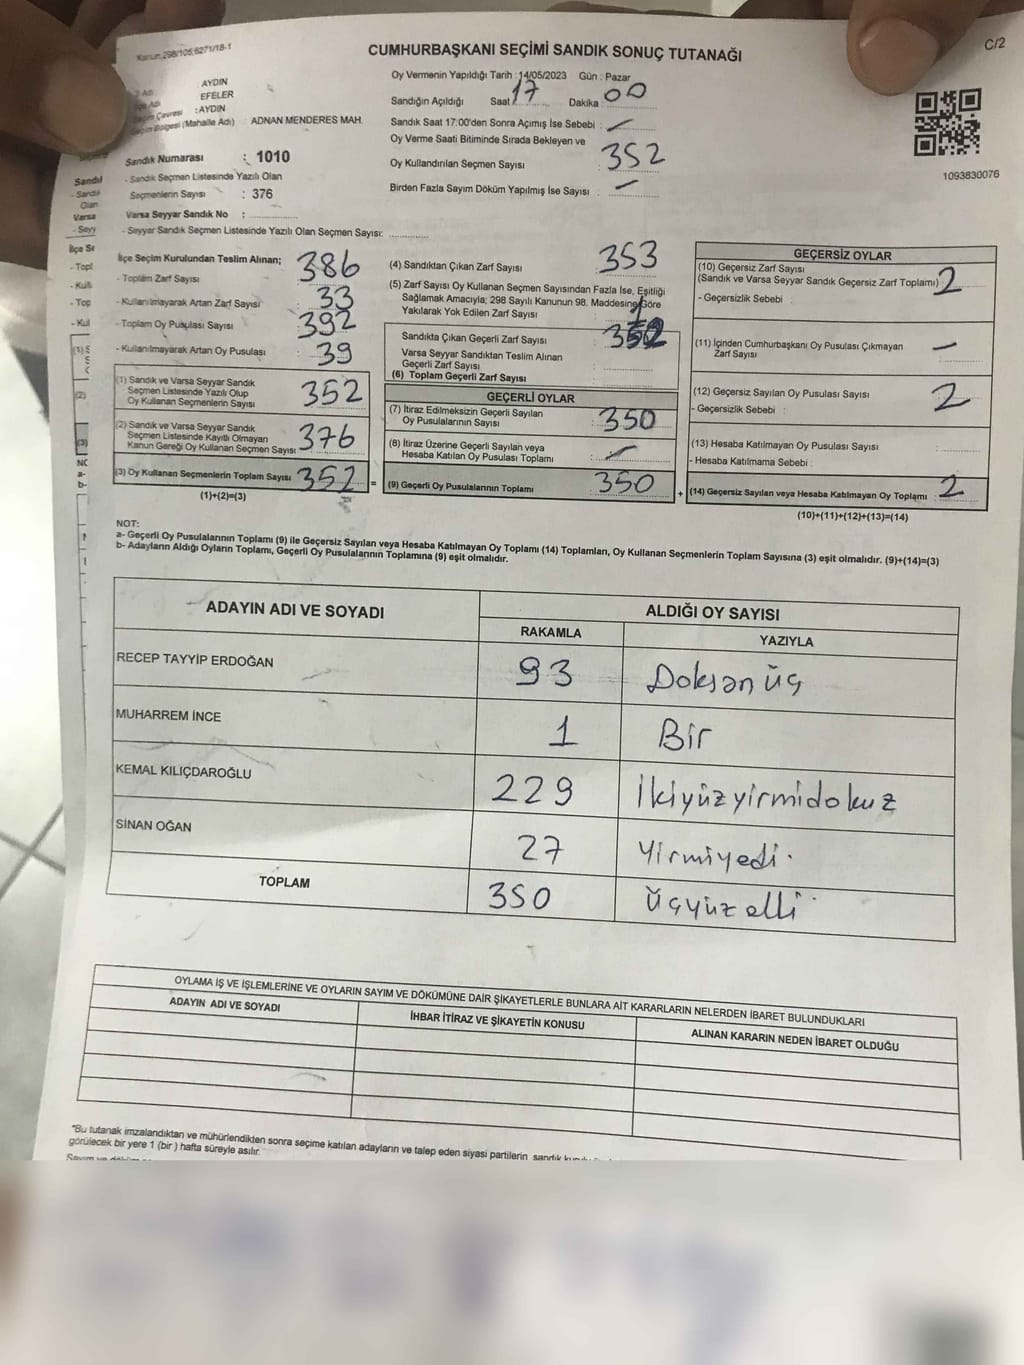 Kanun:298/105;6271/18-1
CUMHURBAŞKANI SEÇİMİ SANDIK SONUÇ TUTANAĞI
C/2
AYDIN
EFELER
Seçim Çevresi : AYDIN
Seçim Bölgesi (Mahalle Adı) ADNAN MENDERES MAH.
Oy Vermenin Yapıldığı Tarih : 14/05/2023 Gün : Pazar
Sandığın Açıldığı Saat 17 Dakika 00
Sandık Saat 17:00'den Sonra Açımış İse Sebebi : —
Oy Verme Saati Bitiminde Sırada Bekleyen ve
Oy Kullandırılan Seçmen Sayısı : 352
Birden Fazla Sayım Döküm Yapılmış İse Sayısı : —
1093830076
Sandık Numarası : 1010
- Sandık Seçmen Listesinde Yazılı Olan
Seçmenlerin Sayısı : 376
Varsa Seyyar Sandık No :
- Seyyar Sandık Seçmen Listesinde Yazılı Olan Seçmen Sayısı:
İlçe Seçim Kurulundan Teslim Alınan;
- Toplam Zarf Sayısı 386
- Kullanılmayarak Artan Zarf Sayısı 33
- Toplam Oy Pusulası Sayısı 392
- Kullanılmayarak Artan Oy Pusulası 39
(1) Sandık ve Varsa Seyyar Sandık
Seçmen Listesinde Yazılı Olup
Oy Kullanan Seçmenlerin Sayısı 352
(2) Sandık ve Varsa Seyyar Sandık
Seçmen Listesinde Kayıtlı Olmayan
Kanun Gereği Oy Kullanan Seçmen Sayısı 376
(3) Oy Kullanan Seçmenlerin Toplam Sayısı 352 =
(1)+(2)=(3)
(4) Sandıktan Çıkan Zarf Sayısı 353
(5) Zarf Sayısı Oy Kullanan Seçmen Sayısından Fazla İse, Eşitliği
Sağlamak Amacıyla; 298 Sayılı Kanunun 98. Maddesine Göre
Yakılarak Yok Edilen Zarf Sayısı : 1
Sandıkta Çıkan Geçerli Zarf Sayısı 352
Varsa Seyyar Sandıktan Teslim Alınan
Geçerli Zarf Sayısı :
(6) Toplam Geçerli Zarf Sayısı :
GEÇERLİ OYLAR
(7) İtiraz Edilmeksizin Geçerli Sayılan
Oy Pusulalarının Sayısı : 350
(8) İtiraz Üzerine Geçerli Sayılan veya
Hesaba Katılan Oy Pusulası Toplamı : —
(9) Geçerli Oy Pusulalarının Toplamı : 350 +
GEÇERSİZ OYLAR
(10) Geçersiz Zarf Sayısı
(Sandık ve Varsa Seyyar Sandık Geçersiz Zarf Toplamı) 2
- Geçersizlik Sebebi :
(11) İçinden Cumhurbaşkanı Oy Pusulası Çıkmayan
Zarf Sayısı : —
(12) Geçersiz Sayılan Oy Pusulası Sayısı : 2
- Geçersizlik Sebebi :
(13) Hesaba Katılmayan Oy Pusulası Sayısı :
- Hesaba Katılmama Sebebi :
(14) Geçersiz Sayılan veya Hesaba Katılmayan Oy Toplamı : 2
(10)+(11)+(12)+(13)=(14)
NOT:
a- Geçerli Oy Pusulalarının Toplamı (9) ile Geçersiz Sayılan veya Hesaba Katılmayan Oy Toplamı (14) Toplamları, Oy Kullanan Seçmenlerin Toplam Sayısına (3) eşit olmalıdır. (9)+(14)=(3)
b- Adayların Aldığı Oyların Toplamı, Geçerli Oy Pusulalarının Toplamına (9) eşit olmalıdır.
ADAYIN ADI VE SOYADI ALDIĞI OY SAYISI
RAKAMLA YAZIYLA
RECEP TAYYİP ERDOĞAN 93 Doksan üç
MUHARREM İNCE 1 Bir
KEMAL KILIÇDAROĞLU 229 İkiyüzyirmidokuz
SİNAN OĞAN 27 Yirmiyedi.
TOPLAM 350 Üçyüz elli
OYLAMA İŞ VE İŞLEMLERİNE VE OYLARIN SAYIM VE DÖKÜMÜNE DAİR ŞİKAYETLERLE BUNLARA AİT KARARLARIN NELERDEN İBARET BULUNDUKLARI
ADAYIN ADI VE SOYADI İHBAR İTİRAZ VE ŞİKAYETİN KONUSU ALINAN KARARIN NEDEN İBARET OLDUĞU
"Bu tutanak imzalandıktan ve mühürlendikten sonra seçime katılan adayların ve talep eden siyasi partilerin sandık
görülecek bir yere 1 (bir ) hafta süreyle asılır.